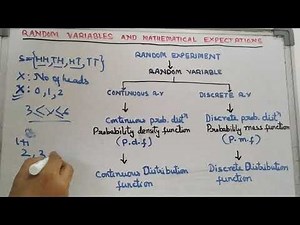 RANDOM VARIABLES AND MATHEMATICAL EXPECTATIONS
S={HH,TH,HT,TT}
X: No of heads
X: 0,1,2
3 ≤ X ≤ 6
2, 3
RANDOM EXPERIMENT
RANDOM VARIABLE
CONTINUOUS R.V
DISCRETE R.V
Continuous prob. distⁿ
Probability density function
(P.d.f)
Discrete prob. distⁿ
Probability mass function
(P.m.f)
Continuous Distribution
function
Discrete Distribution
function